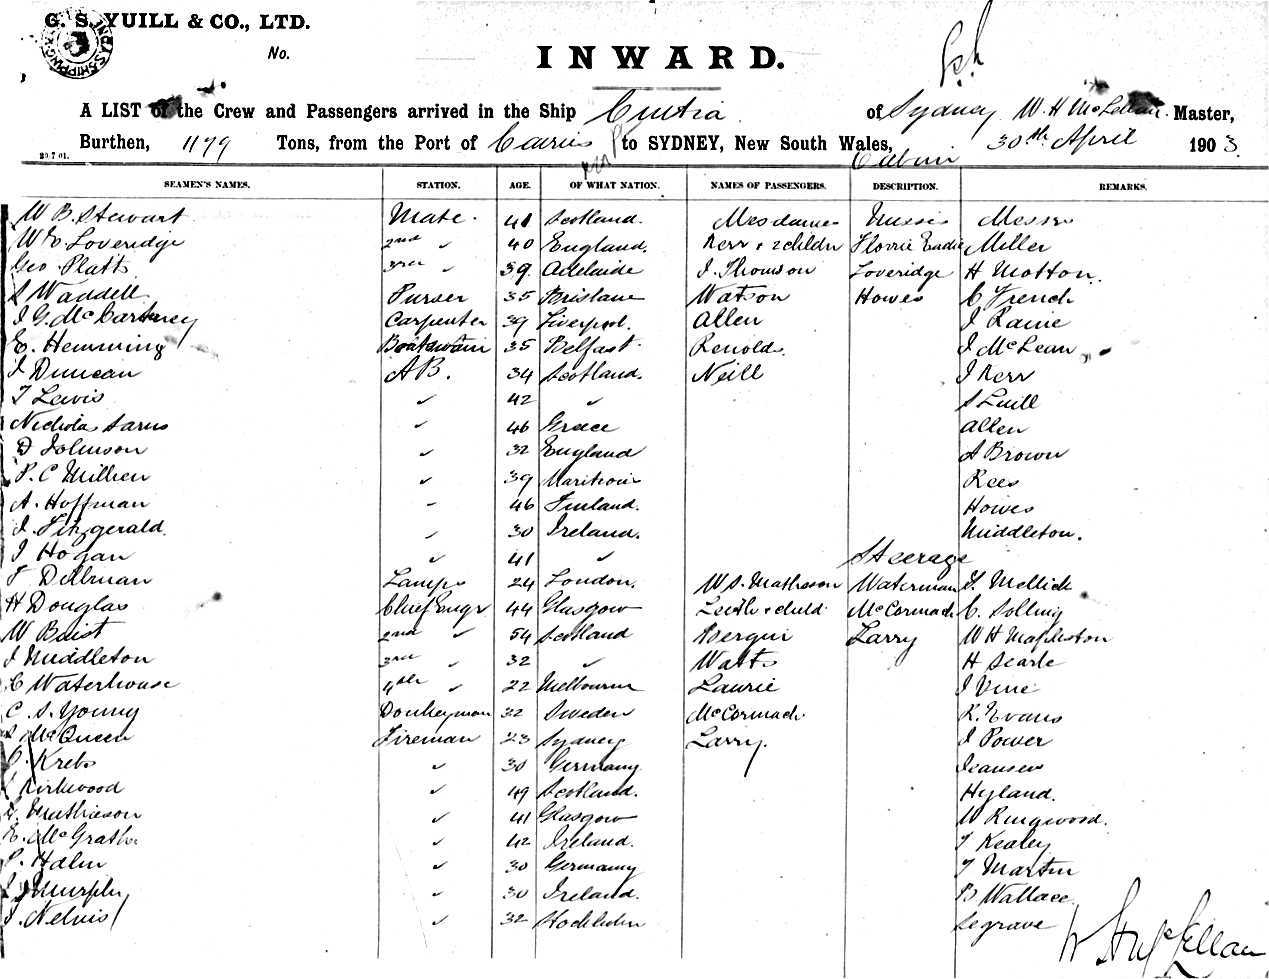 G. S. YUILL & CO., LTD.
No.
INWARD.
A LIST of the Crew and Passengers arrived in the Ship of Sydney W. H. McLellan Master,
Burthen, 1179 Tons, from the Port of Cairns to SYDNEY, New South Wales, 30th April 1903.
29.7.01.
Cabin
SEAMEN'S NAMES. STATION. AGE. OF WHAT NATION. NAMES OF PASSENGERS. DESCRIPTION. REMARKS.
W B. Stewart Mate. 41 Scotland. Mesdames Misses Messrs
W E. Loveridge 2nd " 40 England. Kerr + 2 childn Florrie Eadie Miller
Geo Platt 3rd " 39. Adelaide J. Thomson Loveridge H Motton.
S Waddell Purser 35 Brisbane Watson Howes C French
J. G. McCartney Carpenter 39 Liverpool. Allen J Raine
E. Hemming Boatswain 35 Belfast. Renold. J McLean
J Duncan AB. 34 Scotland. Neill J Kerr
T Lewis " 42 " S
Nicholas " 46 Greece Allen
D Johnson " 32 England A Brown
P. C " 39 Rees
A. Hoffman " 46 Finland. Howes
J. Fitzgerald. " 30 Ireland. Middleton.
J Hogan " 41 " Steerage
Dillman Lamps 24 London. W S. Matheson Waterman Mellick
H Douglas Chief Engr 44 Glasgow Leith + child McCormack C. Solling
W Buist 2nd " 54 Scotland Larry W H Mapleston
J Middleton 3rd " 32 " Watts H Searle
C Waterhouse 4th " 22 Melbourne Laurie J Vine
C. S. Young Donkeyman 32 Sweden McCormack. R. Evans
McQueen Fireman 23 Sydney Larry. J Power
Krebs " 30 Germany
Kirkwood " 49 Scotland. Hyland.
Mathieson " 41 Glasgow W Ringwood.
E. McGrath " 42 Ireland. T Kealey
P. Hahn " 30 Germany T Martin
J Murphy " 30 Ireland. B Wallace
" 32 Segrave
W H McLellan